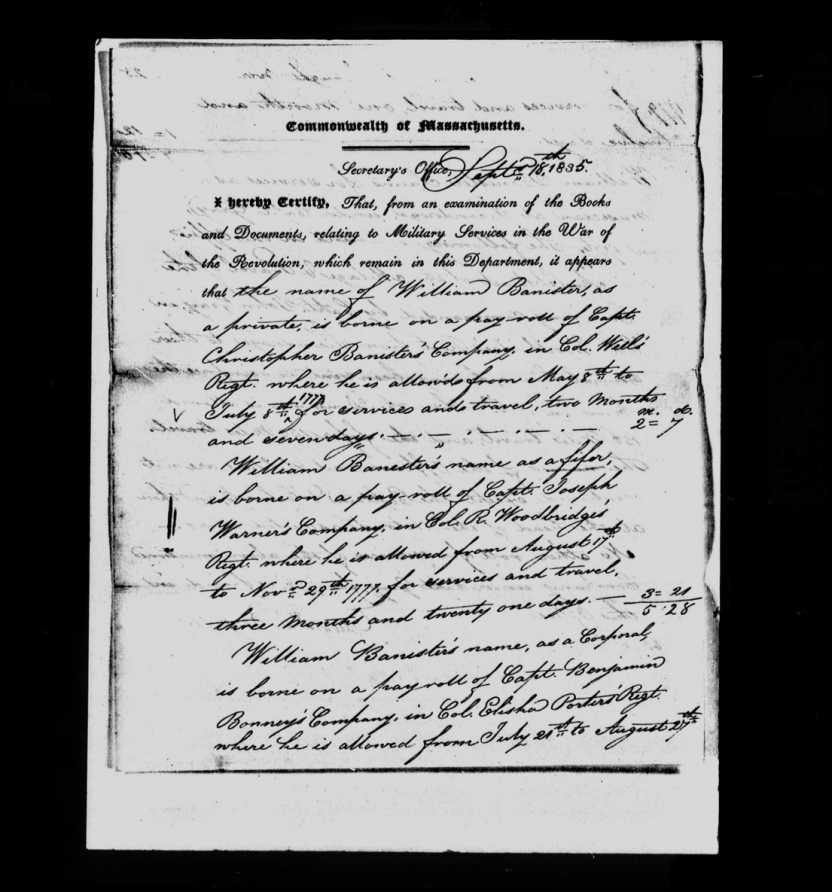 Commonwealth of Massachusetts.
Secretary's Office, Septr. 18th, 1835.
I hereby Certify, That, from an examination of the Books
and Documents, relating to Military Services in the War of
the Revolution, which remain in this Department, it appears
that the name of William Banister, as
a private, is borne on a pay-roll of Capt.
Christopher Banister's Company, in Col. Wells'
Regt. where he is allowed from May 8th to
July 8th 1777, for services and travel, two Months
and seven days. m. d.
2 = 7
William Banister's name as a fifer,
is borne on a pay-roll of Capt. Joseph
Warner's Company, in Col. R. Woodbridge's
Regt. where he is allowed from August 17th
to Novr. 29th 1777, for services and travel,
three Months and twenty one days. 3 = 21
5 . 28
William Banister's name, as a Corporal,
is borne on a pay roll of Capt. Benjamin
Bonney's Company, in Col. Elisha Porter's Regt.
where he is allowed from July 21st to August 27th